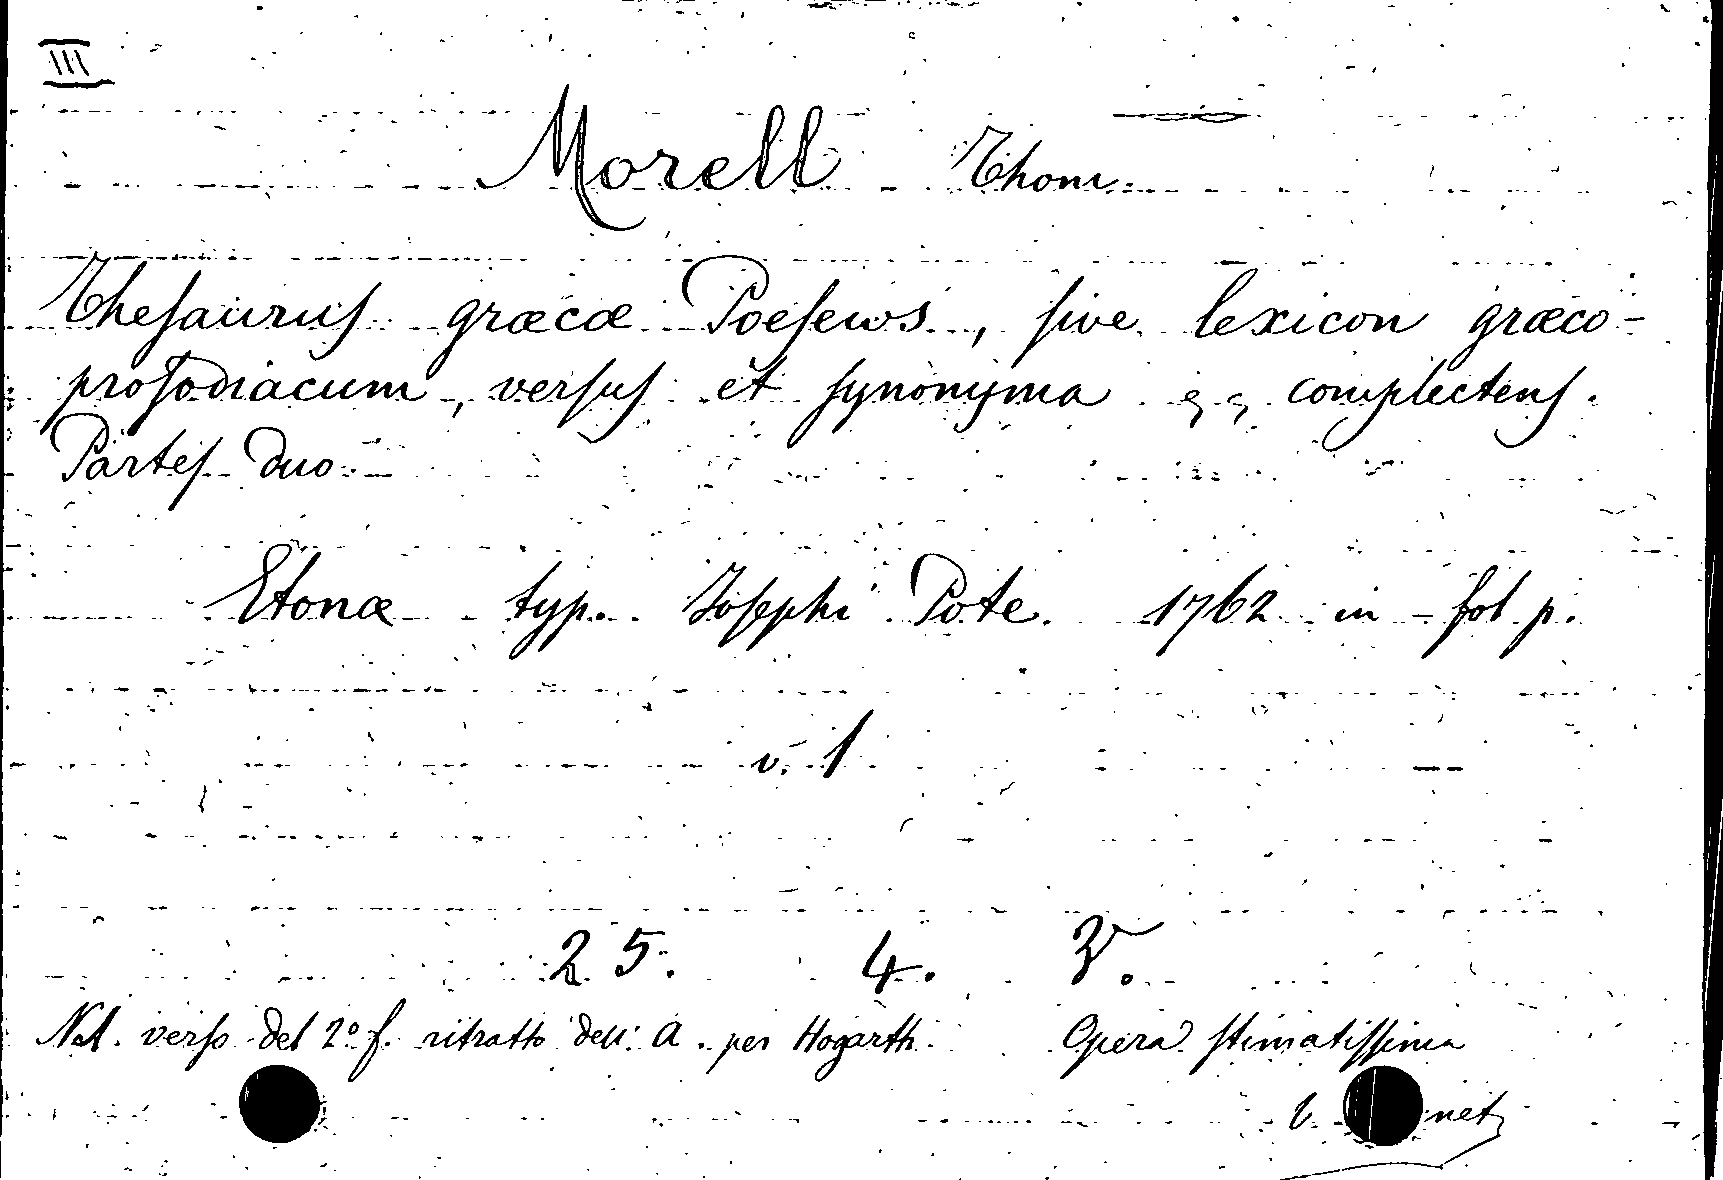 III
Morell Thom.
Thesaurus græcæ Poesews, sive lexicon græco-
prosodiacum, versus et synonyma complectens.
Partes duo
Etonæ typ. Iosephi Pote. 1762 in-fol p.
v. 1
25. 4. 3.
Nel. verso del 2º f. ritratto dell' A. per Hogarth. Opera stimatissima